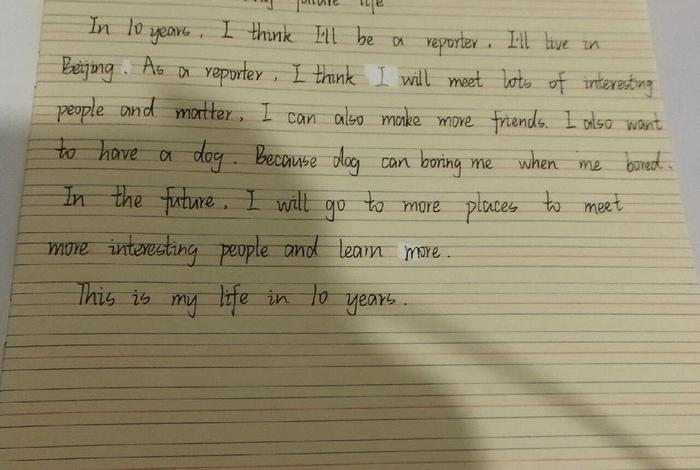 future life
In 10 years, I think I'll be a reporter. I'll live in
Beijing. As a reporter, I think I will meet lots of interesting
people and matter, I can also make more friends. I also want
to have a dog. Because dog can boring me when me bored.
In the future, I will go to more places to meet
more interesting people and learn more.
This is my life in 10 years.